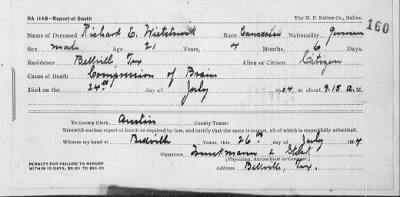 RA 1148—Report of Death The M. P. Exline Co., Dallas.
160
Name of Deceased Richard E. Race Caucasian Nationality German
Sex male Age 21 Years, 4 Months, 6 Days.
Residence Bellville, Tex Alien or Citizen Citizen
Cause of Death Compression of Brain
Died on the 24th day of July 1904 at 9.15 a. M.
To County Clerk, Austin County Texas:
Herewith enclose report of death as required by law, and certify that the same is correct, all of which is respectfully submitted.
Witness my hand at Bellville Texas, this 26th day of July 1904
Signature,
(Physician, Accoucheur or Coroner.)
PENALTY FOR FAILURE TO REPORT Address Bellville, Tex.
WITHIN 10 DAYS, $5.00 TO $50.00